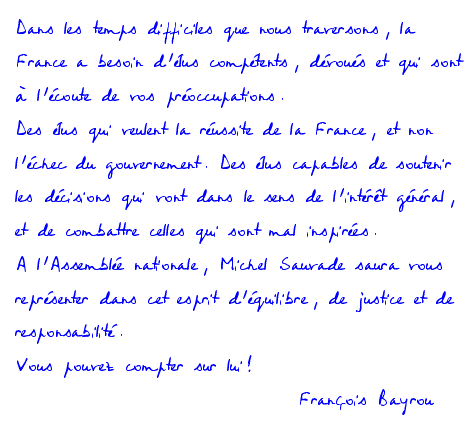 Dans les temps difficiles que nous traversons, la
France a besoin d'élus compétents, dévoués et qui sont
à l'écoute de vos préoccupations.
Des élus qui veulent la réussite de la France, et non
l'échec du gouvernement. Des élus capables de soutenir
les décisions qui vont dans le sens de l'intérêt général,
et de combattre celles qui sont mal inspirées.
A l'Assemblée nationale, Michel Sauvade saura vous
représenter dans cet esprit d'équilibre, de justice et de
responsabilité.
Vous pouvez compter sur lui!
François Bayrou